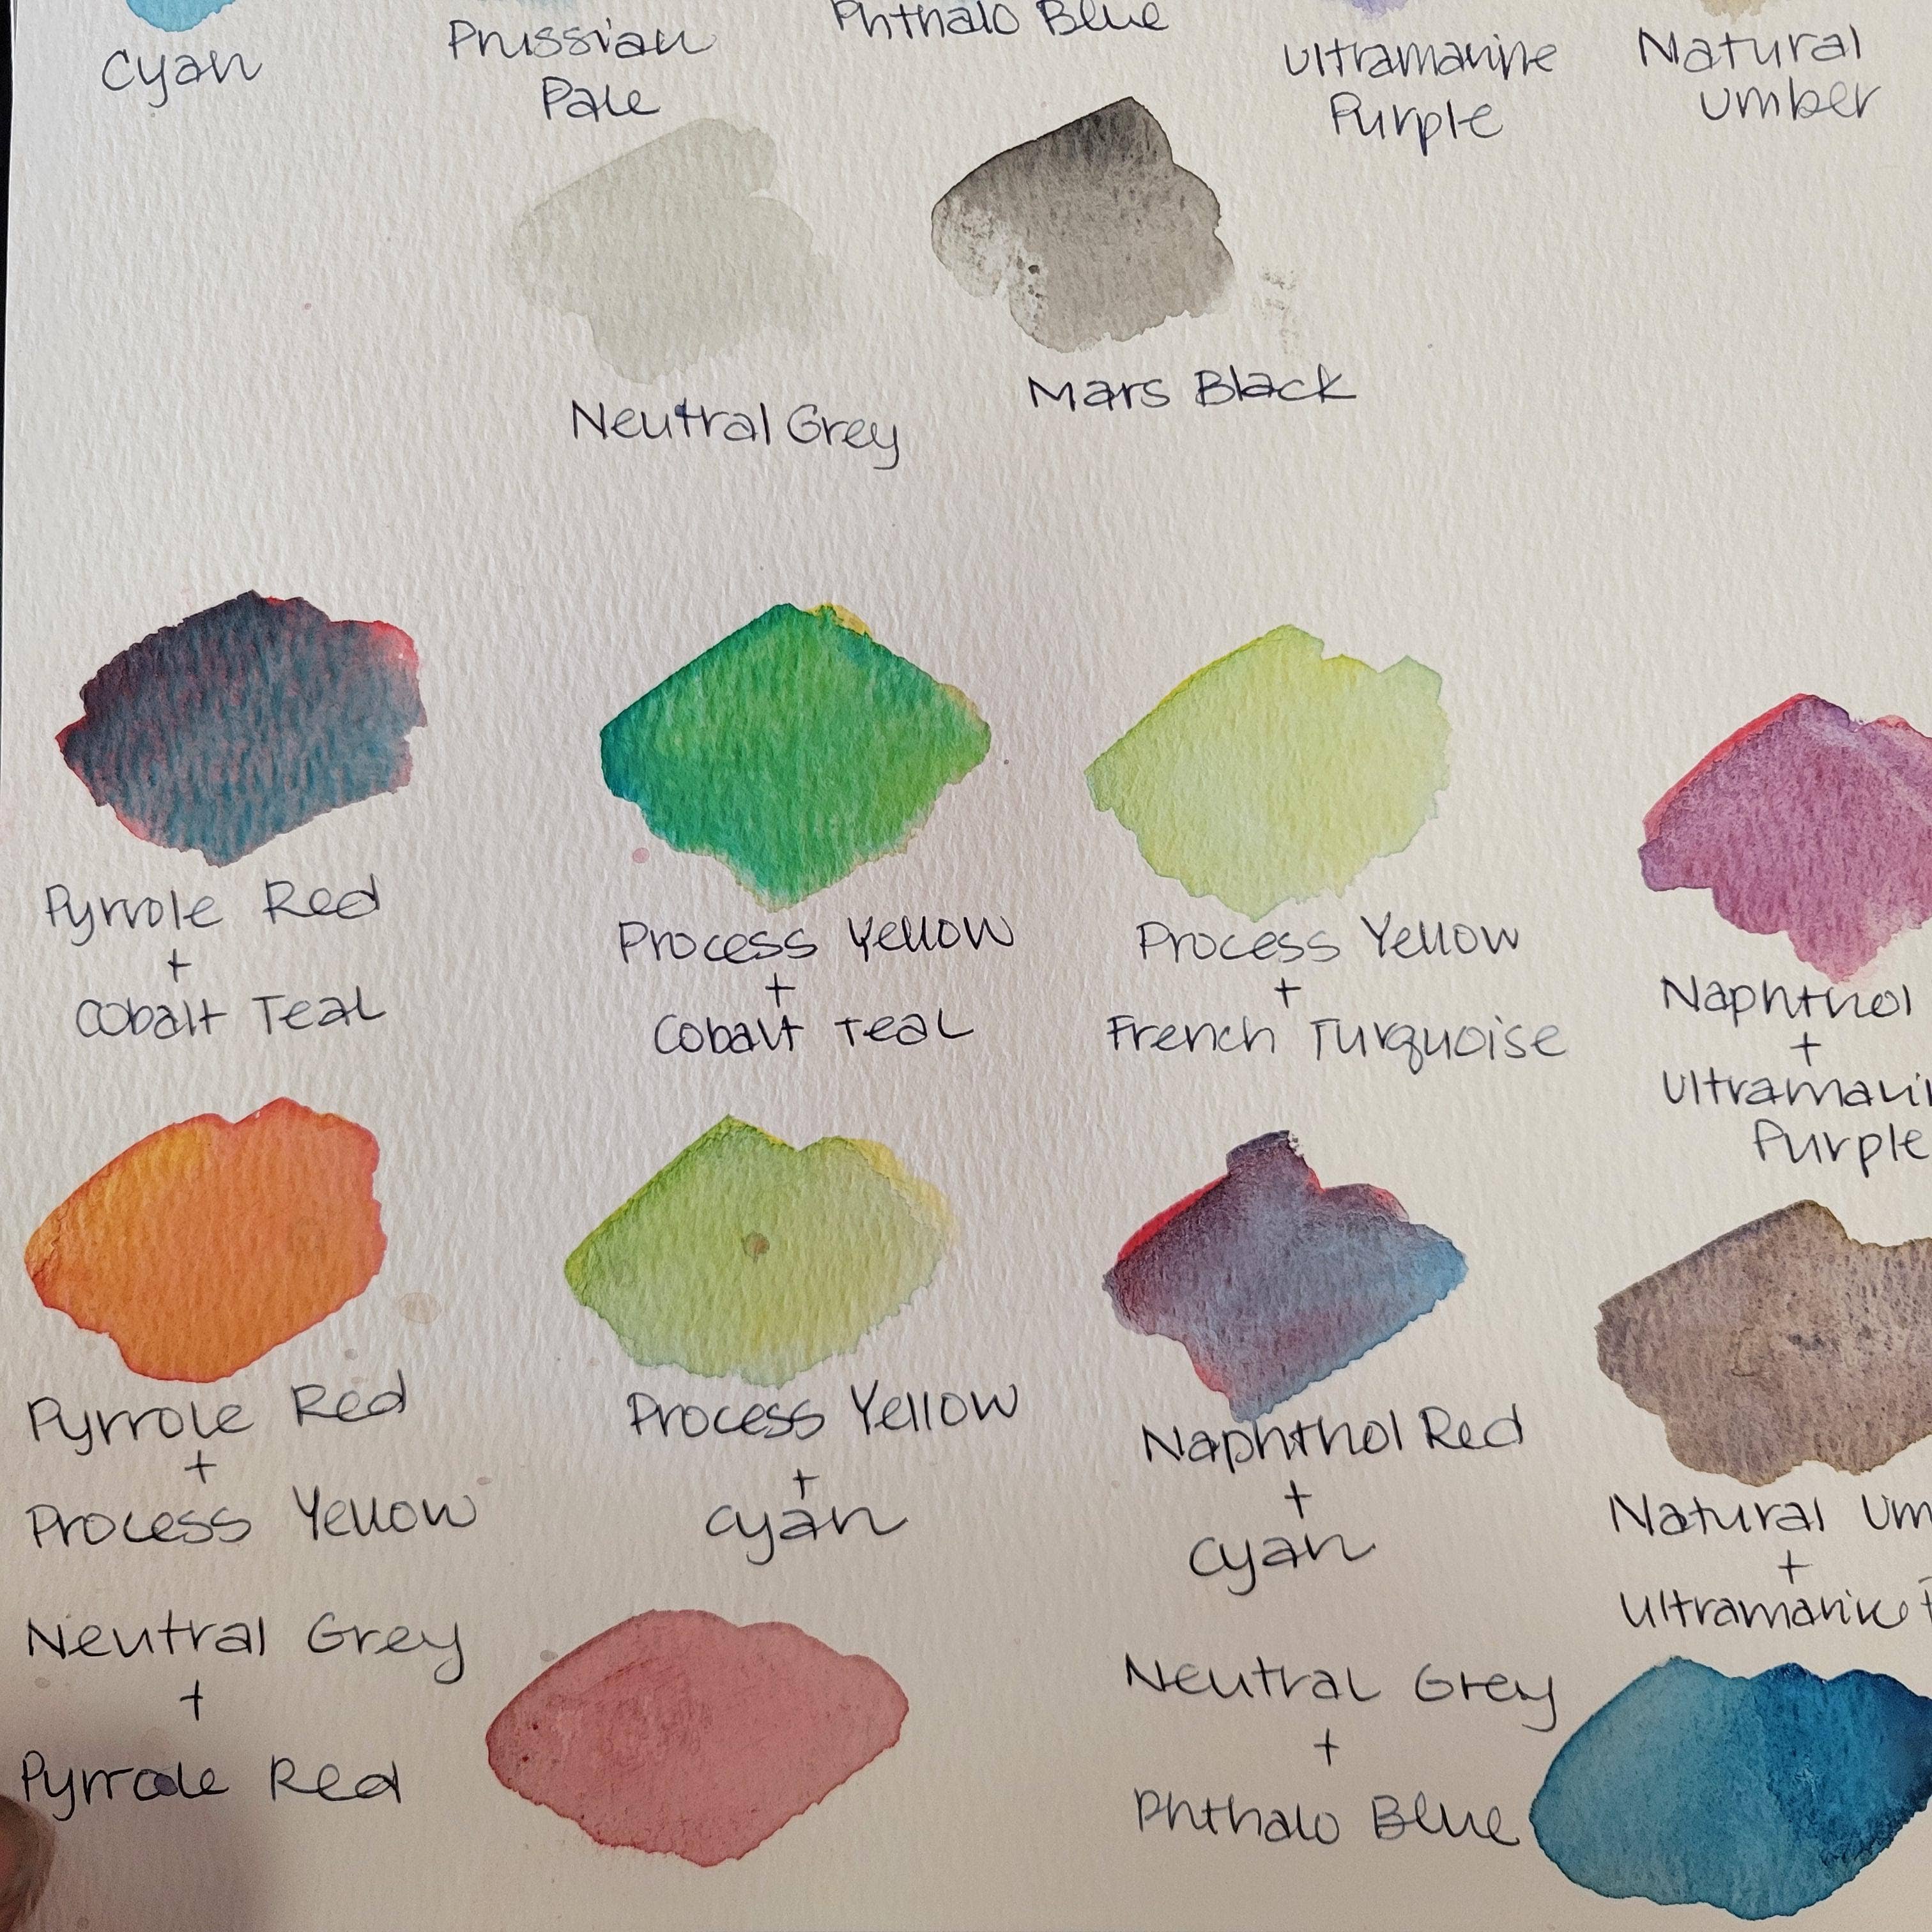 Cyan
Prussian
Pale
Phthalo Blue
Ultramarine
Purple
Natural
Umber
Neutral Grey
Mars Black
Pyrrole Red
+
Cobalt Teal
Process Yellow
+
Cobalt Teal
Process Yellow
+
French Turquoise
Naphthol
+
Ultramari
Purple
Pyrrole Red
+
Process Yellow
Process Yellow
+
Cyan
Naphthol Red
+
Cyan
Natural Um
+
Ultramarine
Neutral Grey
+
Pyrrole Red
Neutral Grey
+
Phthalo Blue